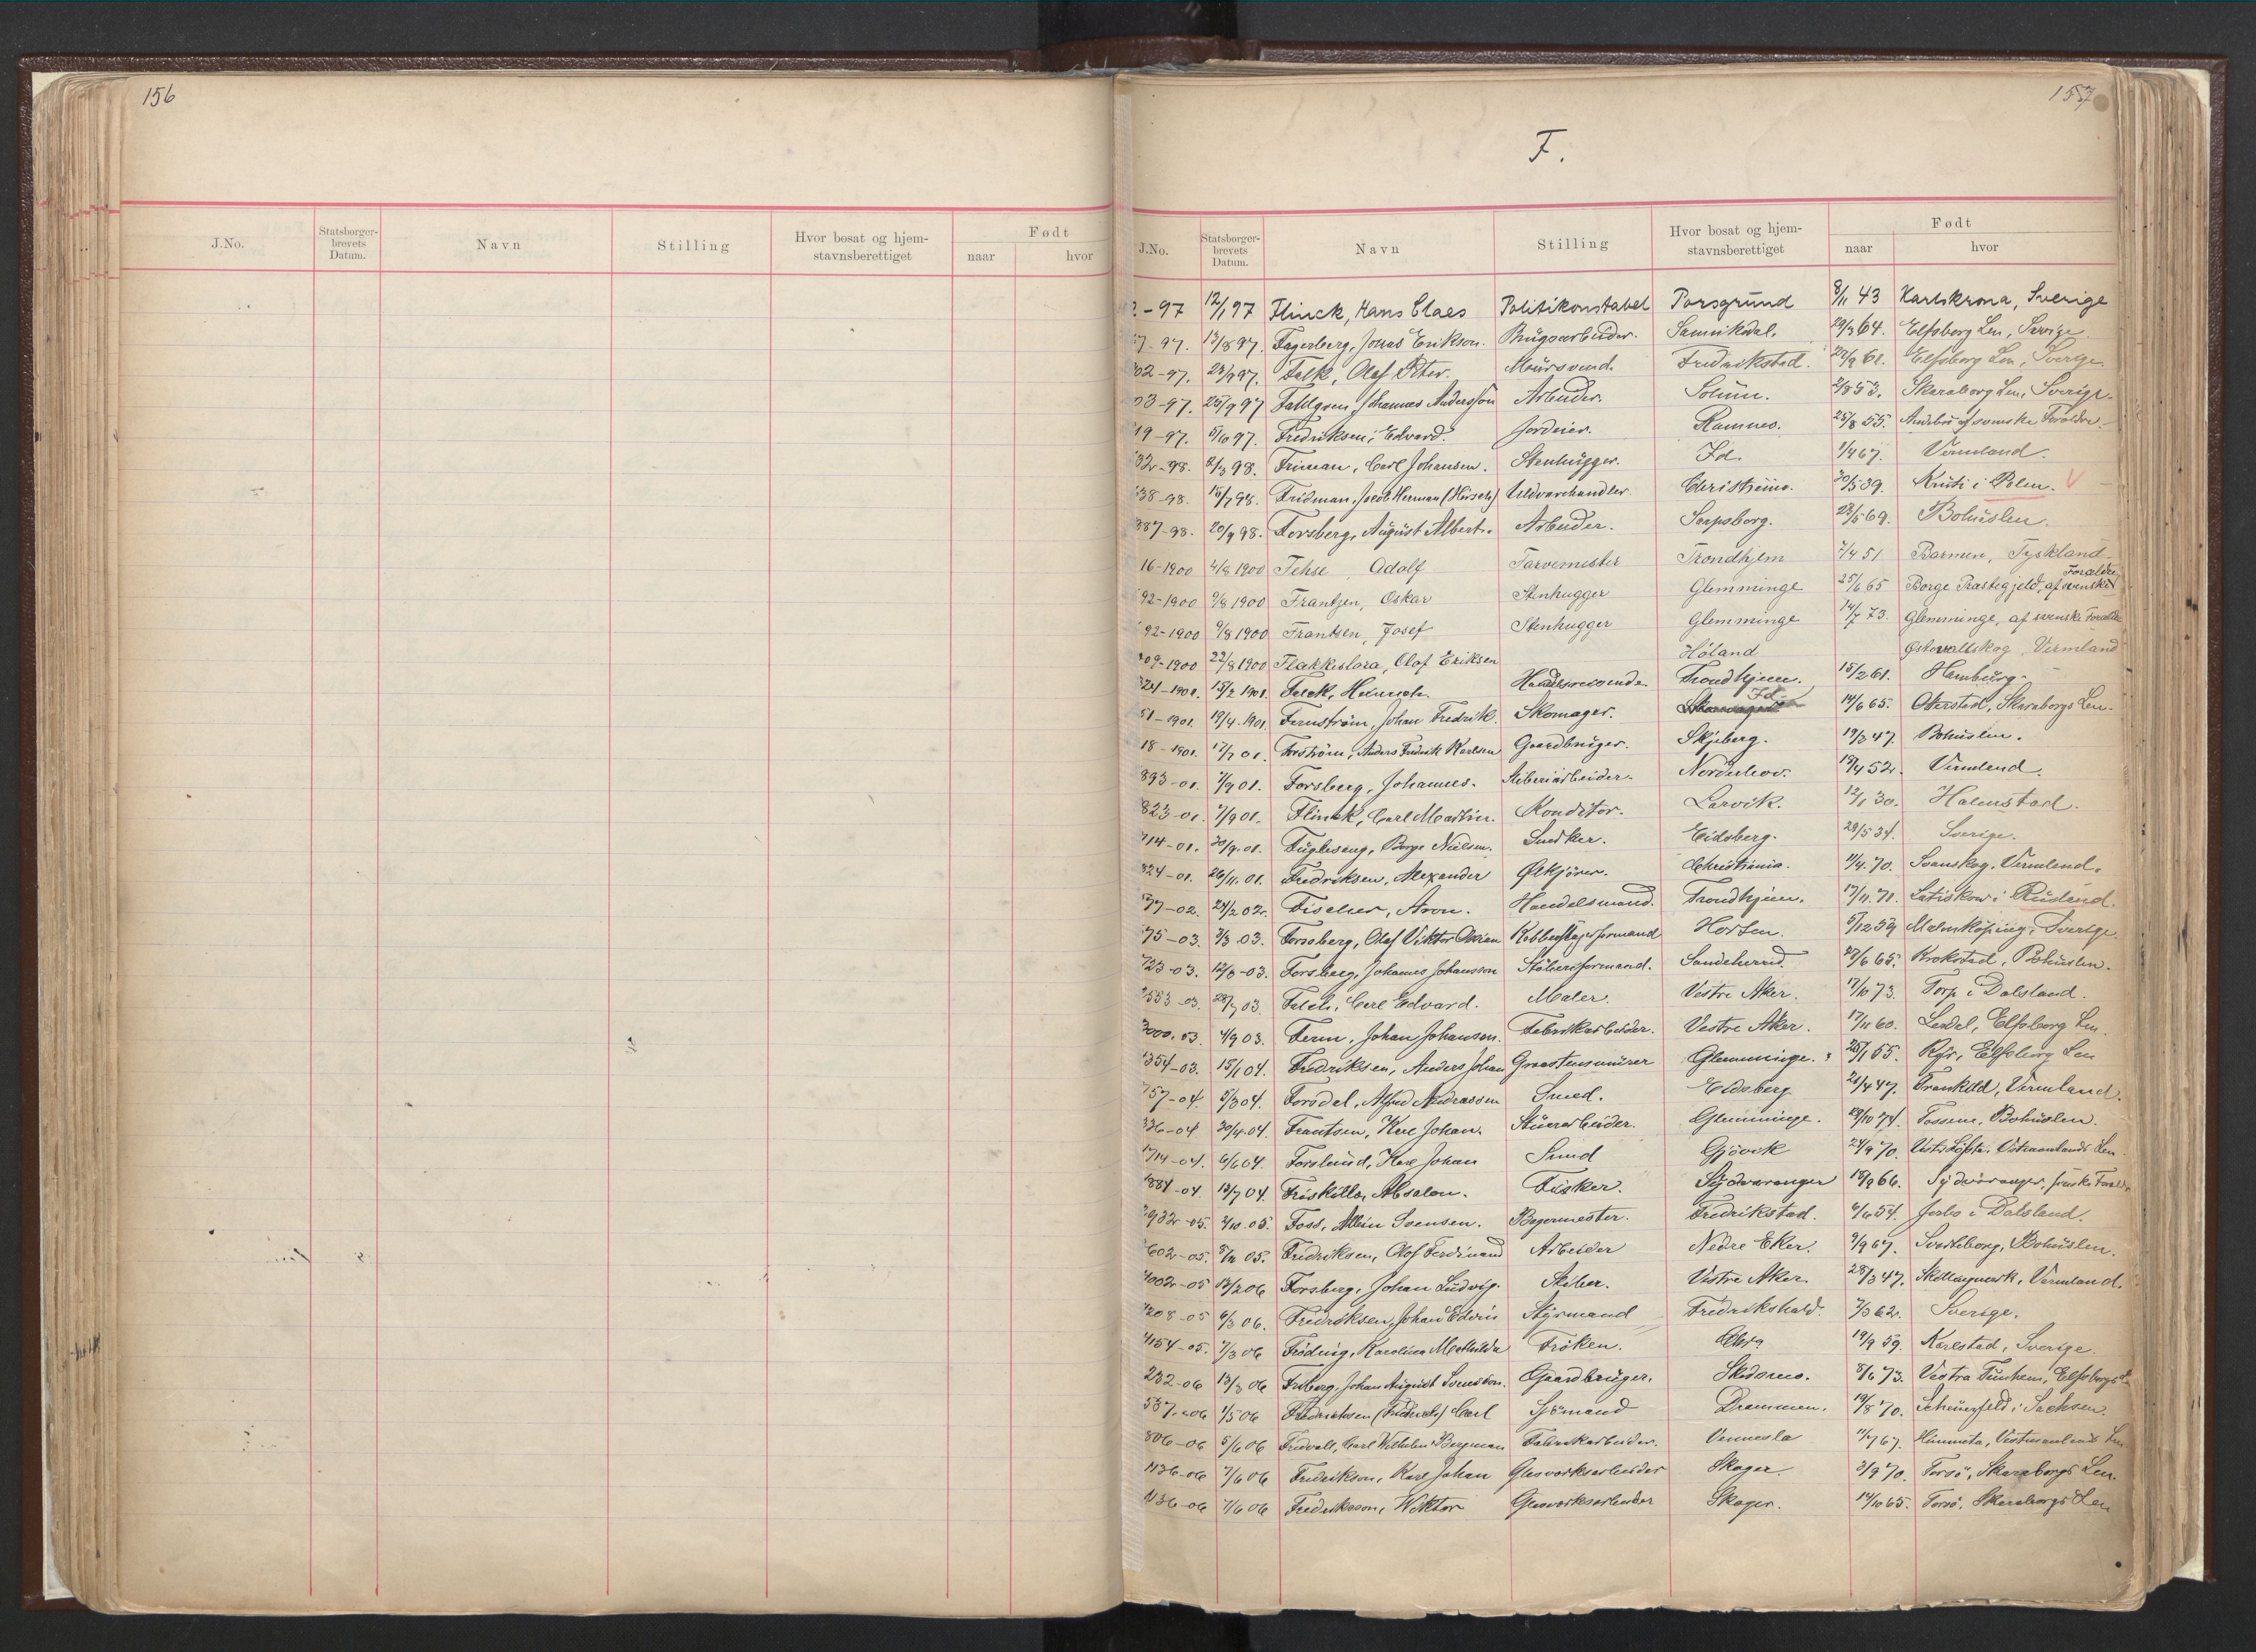 156
J.No.
Statsborger-
brevets
Datum.
Navn
Stilling
Hvor bosat og hjem-
stavnsberettiget
Født
naar
hvor
157
F.
J.No.
Statsborger-
brevets
Datum.
Navn
Stilling
Hvor bosat og hjem-
stavnsberettiget
Født
naar
hvor
-97 12/1 97 Flinck, Hans Claes Politikonstabel Porsgrund 8/11 43 Karlskrona, Sverige
-97. 13/8 97. Fagerberg, Jonas Erikson. Brugsarbeider. 29/3 64. Elfsborg Len, Sverige
02-97. 23/9 97. Falk, Olaf Peter. Mursvend. Fredrikstad. 61. Elfsborg Len, Sverige.
03-97. 25/9 97 Fahlgren, Johannes Andersson Arbeider. Solum. 53. Skaraborg Len, Sverige.
19-97. 5/10 97. Fredriksen, Edvard. Jordeier. Ramnes. 25/8 55. Andebu af svenske Forældre.
32-98. 2/3 98. Friman, Carl Johansen. Stenhugger. Id. 1/4 67. Vermland.
38-98. 15/7 98. Fridman, Jacob Herman (Hirsch) Uldvarehandler. Christiania. 20/5 39. i Polen. V
387-98. 20/9 98. Forsberg, August Albert. Arbeider. Sarpsborg. 23/5 69. Bohuslen.
16-1900 4/8 1900 Fehse, Adolf Farvemester Trondhjem 7/4 51 Barmen, Tyskland
92-1900 9/8 1900 Frantzen, Oskar Stenhugger Glemminge 25/6 65 Borge Præstegjeld, af svenske Forældre
92-1900 9/8 1900 Frantsen, Josef Stenhugger Glemminge 14/7 73. Glemminge, af svenske Forældre
09-1900 22/8 1900 Flakkislora, Olof Eriksen Höland Östervallskog, Vermland
321-1901. 15/2 1901. Feeck, Heinrich. Handelsreisende. Trondhjem. 15/2 61. Hamburg.
51-1901. 19/4 1901 Fernström, Johan Fredrik. Skomager. Id. 14/6 65. Skaraborgs Len.
18-1901. 17/7 01. Forström, Anders Fredrik Karlsen Gaardbruger. Skjeberg. 19/3 47. Bohuslen.
893-01. 7/9 01. Forsberg, Johannes. Sliberiarbeider. Norderhov. 19/4 52. Vermlend.
823-01. 7/9 01. Flinck, Carl Martin. Konditor. Larvik. 12/1 30. Halmstad.
14-01. 30/9.01. Fugleseng, Börge Nielsen. Snedker. Eidsberg. 29/5 34. Sverige.
824-01. 26/11.01. Fredriksen, Alexander Ølkjører. Christiania. 11/4.70. Svanskog, Vermlend.
77-02. 24/2 02. Fischer, Aron. Handelsmand. Trondhjem. 17/11.71. i Rusland.
75-03. 3/3.03. Forssberg, Olaf Viktor Horten. 5/12 59 Malmköping, Sverige.
723-03. 12/3-03. Forsberg, Johannes Johansson Sliberiformand. Sandeherred. 27/6 65. Krokstad, Bohuslen.
553-03. 28/7 03. Falch, Carl Edvard. Maler. Vestre Aker. 17/10 73. Torp i Dalsland.
3000.03. 4/9 03. Ferm, Johan Johansen. Fabrikarbeider. Vestre Aker. 17/11 60. Elfsborg Len.
1354-03. 15/1 04. Fredriksen, Anders Johan Graastensmurer Glemminge. 25/1 55. Elfsborg Len
757-04. 5/3 04. Forsdal, Alfred Andreassen Smed. Eidsberg 21/4 47. Vermland.
336-04 30/4.04. Frantsen, Karl Johan. Stuerarbeider. Glemminge. 29/10 74. Tossene, Bohuslen.
1714-04. 6/6 04. Forslund, Karl Johan Smed Gjövik 24/9 70. Vestmanlands Len.
1884-04. 13/7 04. Friskitto, Absalon. Fisker. Sydvaranger 18/9 66. Sydvaranger, finske Foræld
2932-05. 2/10.05. Foss, Albin Svensen. Bagermester. Fredrikstad. 6/6 54. i Dalsland.
3602-05. 8/12 05. Fredriksen, Olof Ferdinand Arbeider Nedre Eker. 9/9 67. Svarteborg, Bohuslen.
4002-05 13/2 06 Forsberg, Johan Ludvig. Sliber. Vestre Aker. 28/3 47. Skillingmark, Vermland.
4208-05 6/3 06. Fredriksen, Johan Edvin Styrmand Fredrikshald. 7/3 62. Sverige.
4154-05. 7/3 06 Fröding, Karolina Mathilda Fröken. Chra 19/9 59. Karlstad, Sverige.
232-06 13/3 06 Friberg, Johan August Svensson. Gaardbruger. Skedsmo. 8/6 73. Vestra Tunhem, Elfsborgs Len
537-06 1/5 06 Fredriksen (Friderich) Carl Sjömand Drammen. 19/8 70. i Sachsen.
806-06 5/6 06 Fridvall, Carl Wilhelm Bergman Fabrikarbeider. Vennesla 11/7 67. Himmeta, Vestmanlands Len
1136-06 7/6 06 Fredrikson, Karl Johan Glasværksarbeider Skoger. 2/9 70. Torsö, Skaraborgs Len.
1136-06 7/6 06 Fredriksson, Wiktor Glasværksarbeider Skoger. 14/10 65. Torsö, Skaraborgs Len